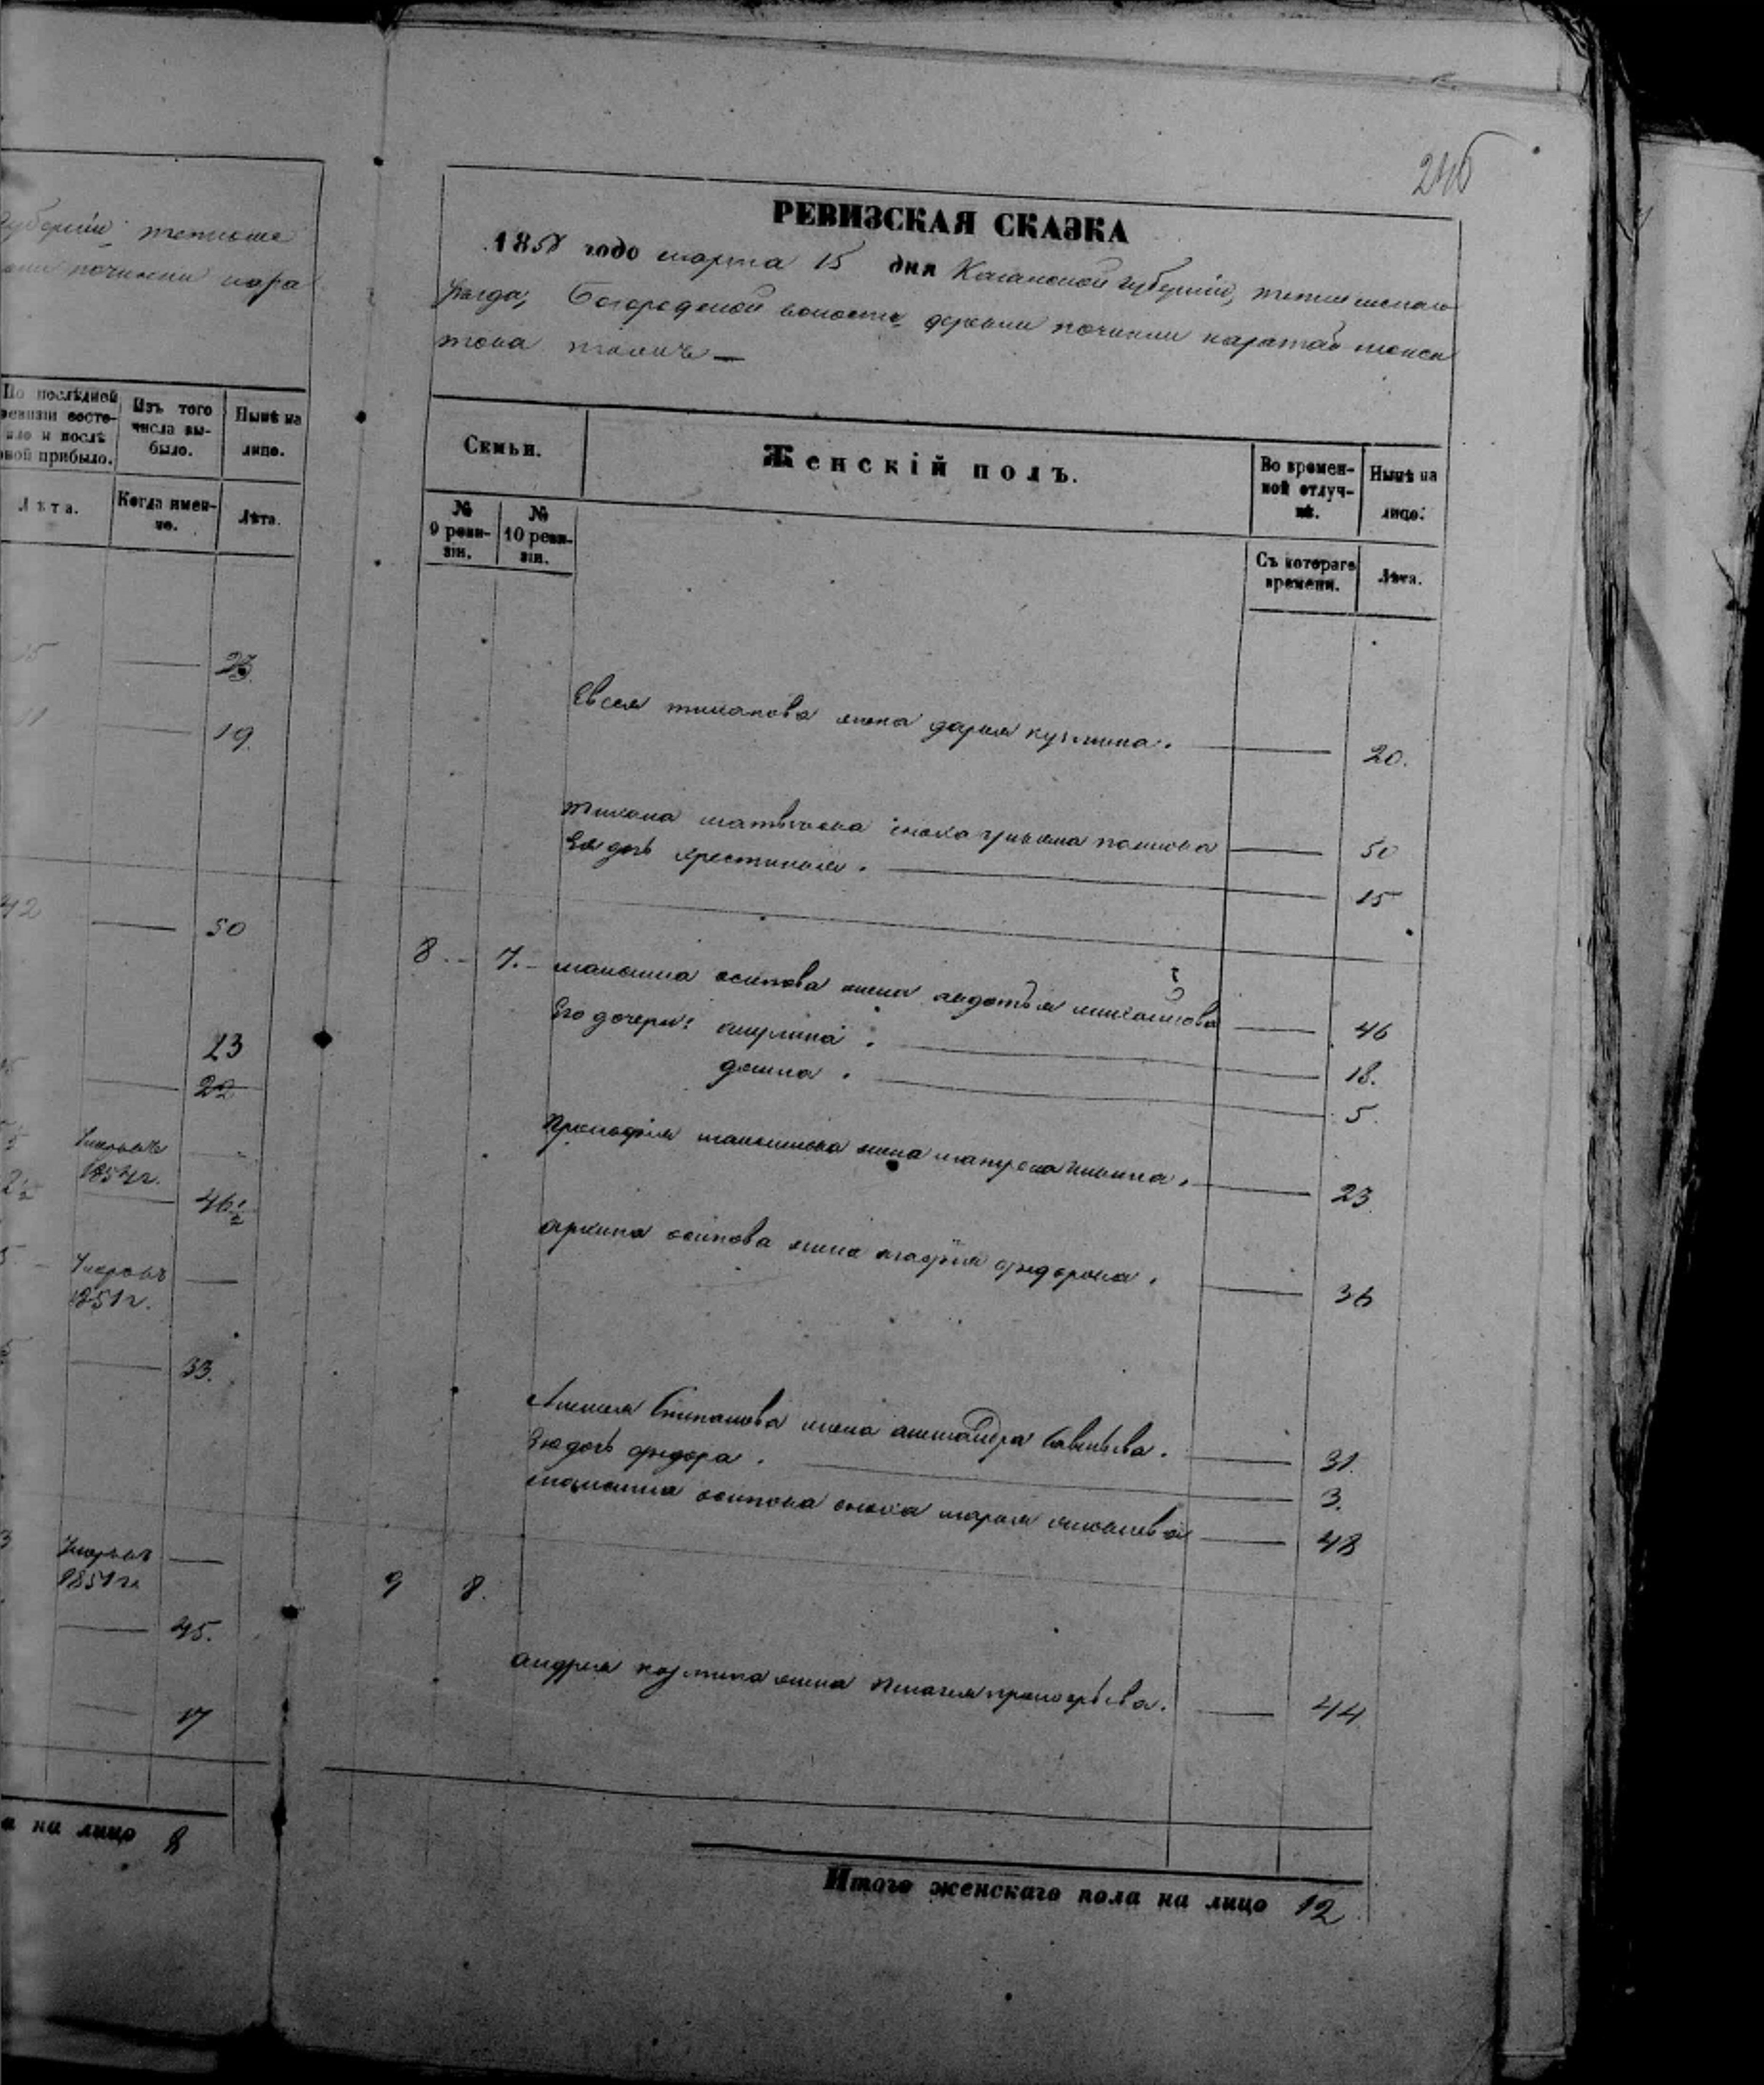 246
губерніи тетюше
починки кара
По послѣдней ревизіи состояло и послѣ оной прибыло.
Изъ того числа выбыло.
Нынѣ на лицо.
Лѣта.
Когда именно.
Лѣта.
23.
19.
42 50
23
22
Умеръ въ
1854 г.
46 1/2
Умеръ въ
1851 г.
33.
Умеръ въ
1851 г.
45.
17
а на лицо 8
РЕВИЗСКАЯ СКАЗКА
1858 года марта 15 дня Казанской губерніи, тетюшскаго
уѣзда, Богородской волости, деревни починки каратай
тожъ
Семьи.
Женскій полъ.
Во временной отлучкѣ.
Нынѣ на лицо.
№ 9 ревизіи.
№ 10 ревизіи.
Съ котораго времени.
Лѣта.
Евсея жена дарья кузмина. 20.
Тихона матвѣева сноха 50
Ея дочь крестинья. 15
8 7. максима осипова жена авдотья михайлова 46
Его дочери: акулина 18.
домна. 5.
Прокофія максимова жена ильина. 23
архипа осипова жена марфа федорова. 36
Алексея Степанова жена александра Савельева. 31.
Ея дочь федора. 3.
максима осипова сноха марья 48
9 8.
андрея козмина жена пелагея прокофьева. 44
Итого женскаго пола на лицо 12